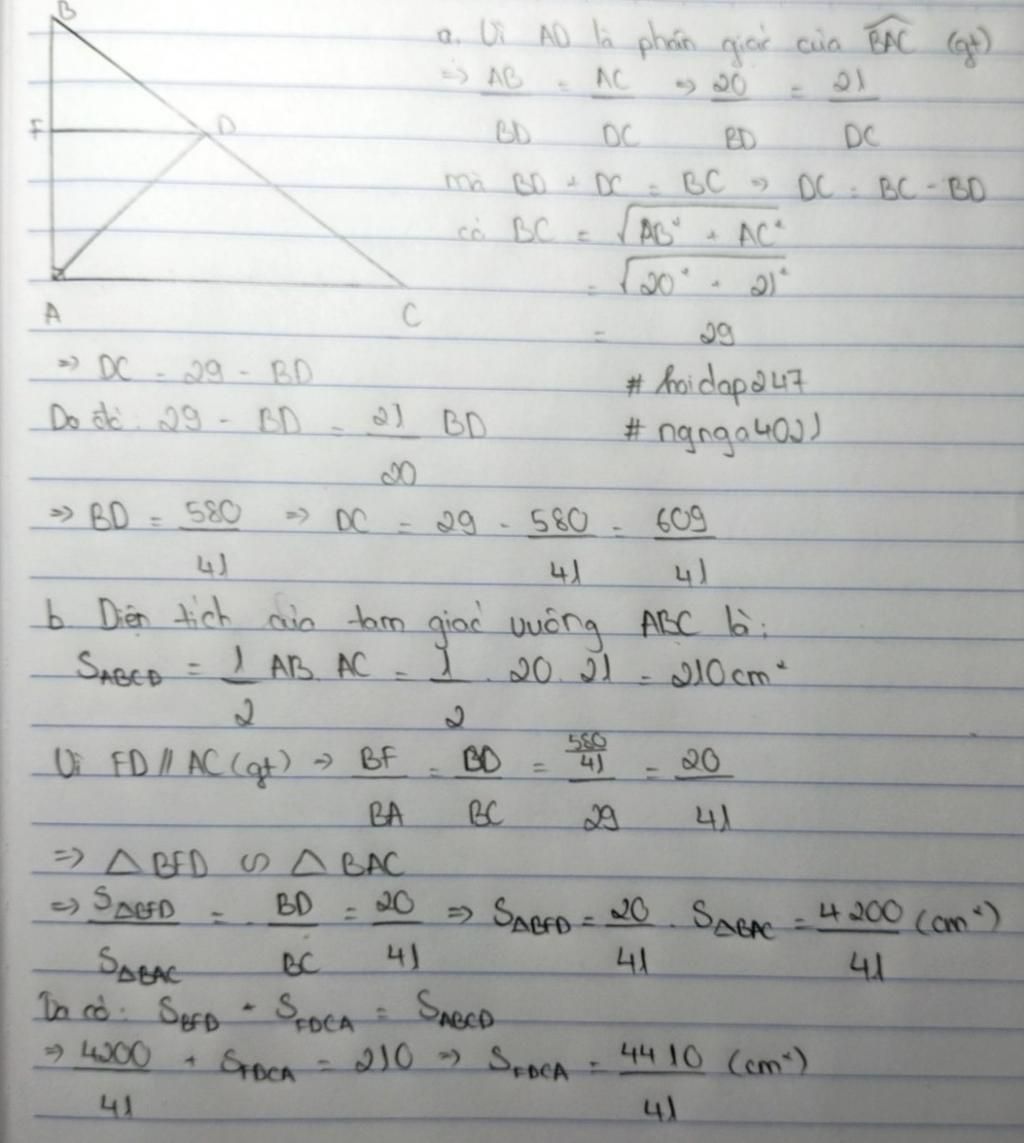 B
F
D
A
C
a. Vì AD là phân giác của \widehat{BAC} (gt)
=> AB/BD = AC/DC => 20/BD = 21/DC
mà BD + DC = BC => DC = BC - BD
có BC = √(AB² + AC²)
= √(20² + 21²)
= 29
=> DC = 29 - BD
# hoidap247
Do đó: 29 - BD = 21/20 BD
# ngnga4021
=> BD = 580/41 => DC = 29 - 580/41 = 609/41
b. Diện tích của tam giác vuông ABC là:
S_ABCD = 1/2 AB. AC = 1/2 . 20. 21 = 210cm²
Vì FD // AC (gt) => BF/BA = BD/BC = (580/41)/29 = 20/41
=> △BFD ∽ △BAC
=> S_△BFD/S_△BAC = BD/BC = 20/41 => S_△BFD = 20/41 . S_△BAC = 4200/41 (cm²)
Ta có: S_BFD + S_FDCA = S_ABCD
=> 4200/41 + S_FDCA = 210 => S_FDCA = 4410/41 (cm²)